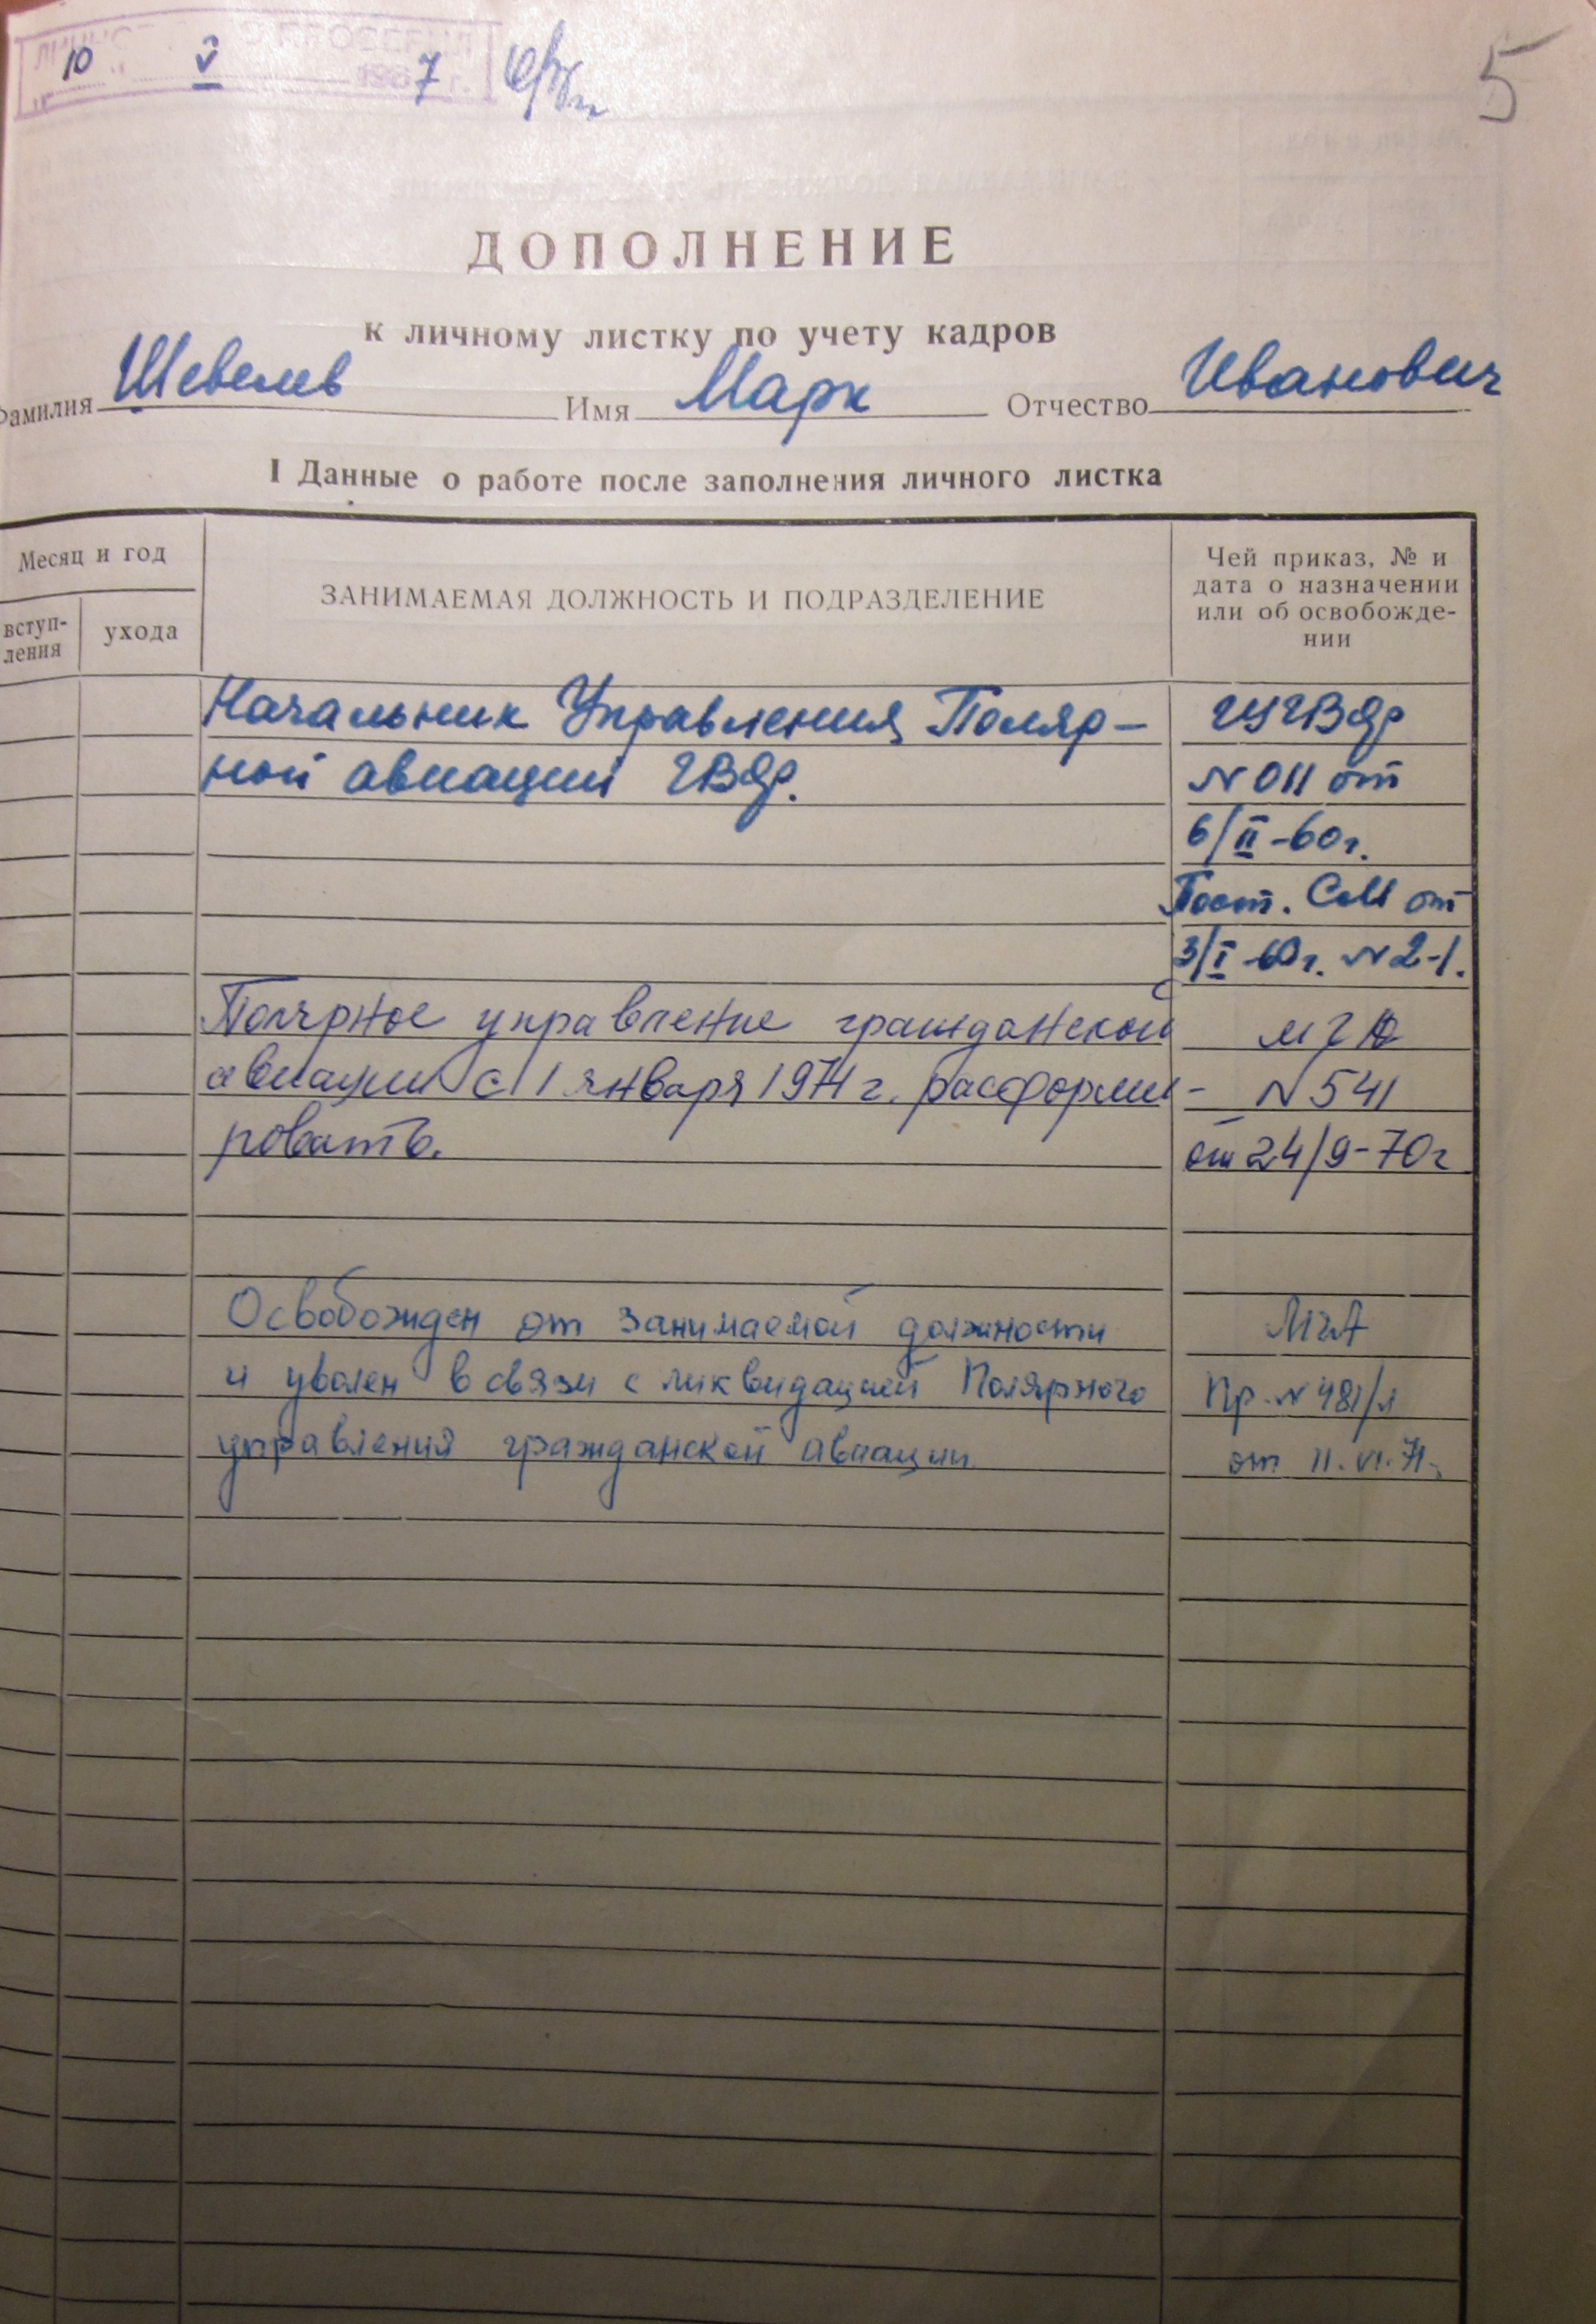 10 V 7
5
ДОПОЛНЕНИЕ
к личному листку по учету кадров
Фамилия Шевелев Имя Марк Отчество Иванович
I Данные о работе после заполнения личного листка
Месяц и год
вступ-
ления
ухода
ЗАНИМАЕМАЯ ДОЛЖНОСТЬ И ПОДРАЗДЕЛЕНИЕ
Чей приказ, № и
дата о назначении
или об освобожде-
нии
Начальник Управления Поляр- ГУГВФ
ной авиации ГВФ. N 011 от
6/II-60г.
Пост. СМ от
3/I-60г. N 2-1.
Полярное управление гражданской МГА
авиации с 1 января 1971 г. расформи- N 541
ровать. от 24/9-70г
Освобожден от занимаемой должности МГА
и уволен в связи с ликвидацией Полярного Пр. N 481/л
управления гражданской авиации от 11.VI.71г.